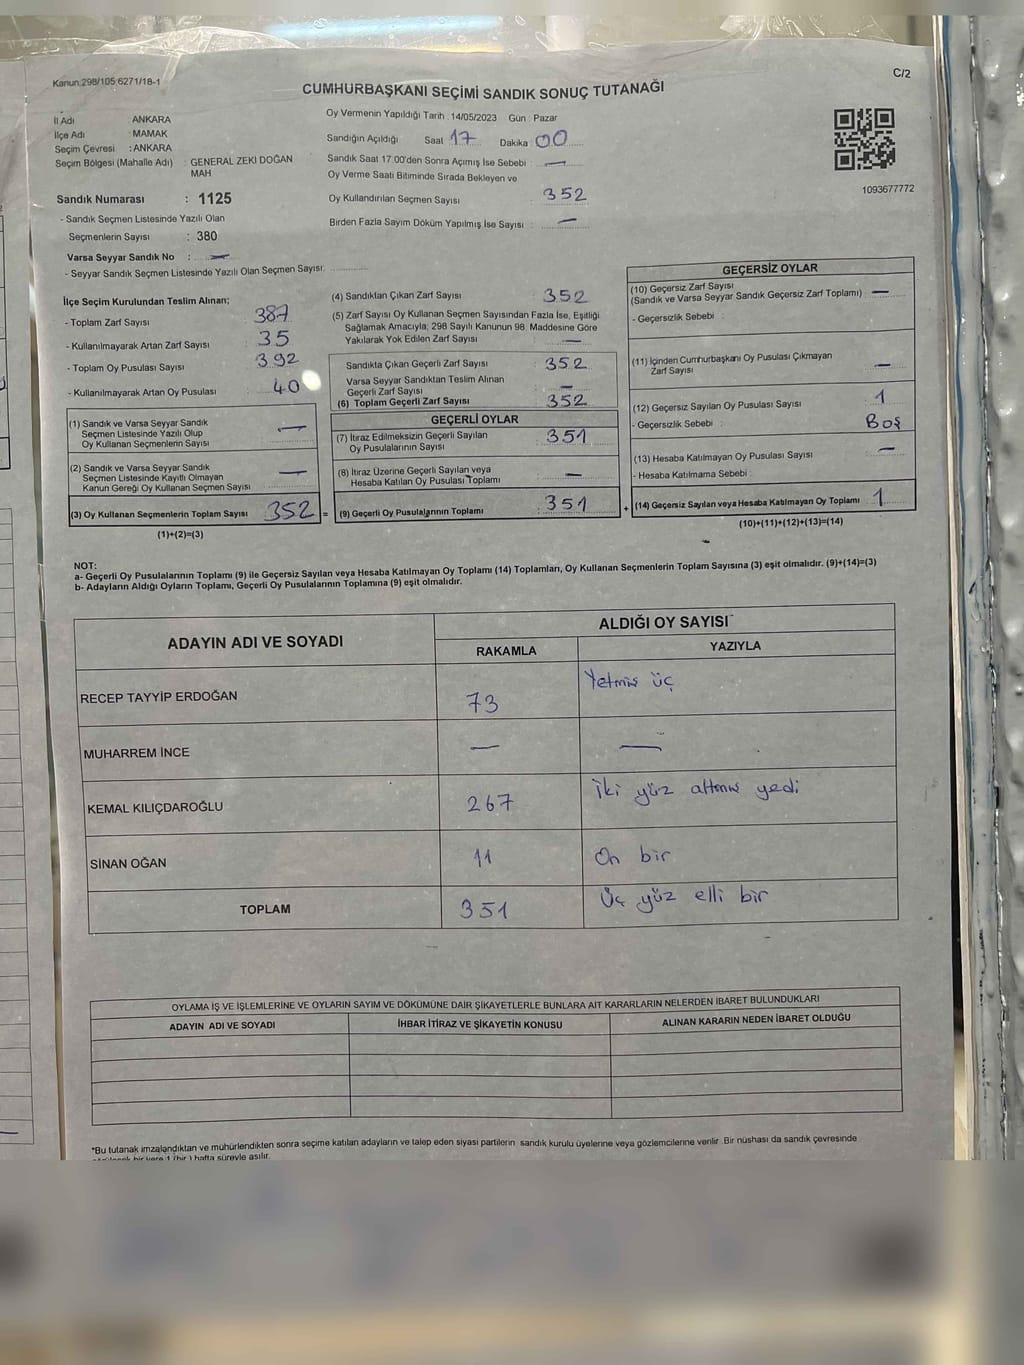 Kanun:298/105:6271/18-1
C/2
CUMHURBAŞKANI SEÇİMİ SANDIK SONUÇ TUTANAĞI
İl Adı : ANKARA
İlçe Adı : MAMAK
Seçim Çevresi : ANKARA
Seçim Bölgesi (Mahalle Adı) : GENERAL ZEKİ DOĞAN
MAH
Sandık Numarası : 1125
- Sandık Seçmen Listesinde Yazılı Olan
Seçmenlerin Sayısı : 380
Varsa Seyyar Sandık No : —
- Seyyar Sandık Seçmen Listesinde Yazılı Olan Seçmen Sayısı:
Oy Vermenin Yapıldığı Tarih : 14/05/2023 Gün : Pazar
Sandığın Açıldığı Saat 17 Dakika 00
Sandık Saat 17.00'den Sonra Açımış İse Sebebi : —
Oy Verme Saati Bitiminde Sırada Bekleyen ve
Oy Kullandırılan Seçmen Sayısı : 352
Birden Fazla Sayım Döküm Yapılmış İse Sayısı : —
1093677772
İlçe Seçim Kurulundan Teslim Alınan;
- Toplam Zarf Sayısı 387
- Kullanılmayarak Artan Zarf Sayısı 35
- Toplam Oy Pusulası Sayısı 392
- Kullanılmayarak Artan Oy Pusulası 40
(1) Sandık ve Varsa Seyyar Sandık
Seçmen Listesinde Yazılı Olup
Oy Kullanan Seçmenlerin Sayısı —
(2) Sandık ve Varsa Seyyar Sandık
Seçmen Listesinde Kayıtlı Olmayan
Kanun Gereği Oy Kullanan Seçmen Sayısı —
(3) Oy Kullanan Seçmenlerin Toplam Sayısı 352 =
(1)+(2)=(3)
(4) Sandıktan Çıkan Zarf Sayısı 352
(5) Zarf Sayısı Oy Kullanan Seçmen Sayısından Fazla İse, Eşitliği
Sağlamak Amacıyla; 298 Sayılı Kanunun 98. Maddesine Göre
Yakılarak Yok Edilen Zarf Sayısı —
Sandıkta Çıkan Geçerli Zarf Sayısı 352
Varsa Seyyar Sandıktan Teslim Alınan
Geçerli Zarf Sayısı —
(6) Toplam Geçerli Zarf Sayısı 352
GEÇERLİ OYLAR
(7) İtiraz Edilmeksizin Geçerli Sayılan
Oy Pusulalarının Sayısı 351
(8) İtiraz Üzerine Geçerli Sayılan veya
Hesaba Katılan Oy Pusulası Toplamı —
(9) Geçerli Oy Pusulalarının Toplamı 351 +
GEÇERSİZ OYLAR
(10) Geçersiz Zarf Sayısı
(Sandık ve Varsa Seyyar Sandık Geçersiz Zarf Toplamı) —
- Geçersizlik Sebebi :
(11) İçinden Cumhurbaşkanı Oy Pusulası Çıkmayan
Zarf Sayısı —
(12) Geçersiz Sayılan Oy Pusulası Sayısı 1
- Geçersizlik Sebebi : Boş
(13) Hesaba Katılmayan Oy Pusulası Sayısı —
- Hesaba Katılmama Sebebi :
(14) Geçersiz Sayılan veya Hesaba Katılmayan Oy Toplamı 1
(10)+(11)+(12)+(13)=(14)
NOT:
a- Geçerli Oy Pusulalarının Toplamı (9) ile Geçersiz Sayılan veya Hesaba Katılmayan Oy Toplamı (14) Toplamları, Oy Kullanan Seçmenlerin Toplam Sayısına (3) eşit olmalıdır. (9)+(14)=(3)
b- Adayların Aldığı Oyların Toplamı, Geçerli Oy Pusulalarının Toplamına (9) eşit olmalıdır.
ADAYIN ADI VE SOYADI
ALDIĞI OY SAYISI
RAKAMLA YAZIYLA
RECEP TAYYİP ERDOĞAN 73 Yetmiş üç
MUHARREM İNCE — —
KEMAL KILIÇDAROĞLU 267 İki yüz altmış yedi
SİNAN OĞAN 11 On bir
TOPLAM 351 Üç yüz elli bir
OYLAMA İŞ VE İŞLEMLERİNE VE OYLARIN SAYIM VE DÖKÜMÜNE DAİR ŞİKAYETLERLE BUNLARA AİT KARARLARIN NELERDEN İBARET BULUNDUKLARI
ADAYIN ADI VE SOYADI İHBAR İTİRAZ VE ŞİKAYETİN KONUSU ALINAN KARARIN NEDEN İBARET OLDUĞU
*Bu tutanak imzalandıktan ve mühürlendikten sonra seçime katılan adayların ve talep eden siyasi partilerin sandık kurulu üyelerine veya gözlemcilerine verilir. Bir nüshası da sandık çevresinde
bir yere 1 (bir) hafta süreyle asılır.